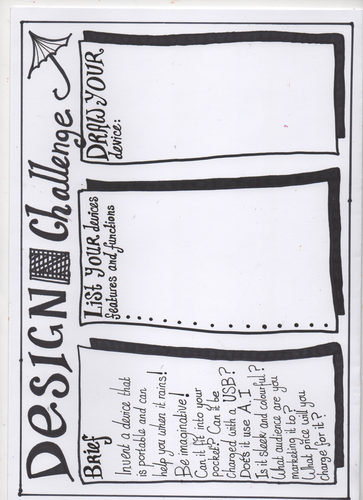 DESIGN Challenge
Brief
Invent a device that
is portable and can
help you when it rains!
Be imaginative!
Can it fit into your
pocket? Can it be
charged with a USB?
Does it use A.I
Is it sleek and colourful?
What audience are you
marketing it to?
What price will you
charge for it?
List YOUR devices
features and functions
DRAW YOUR
device: